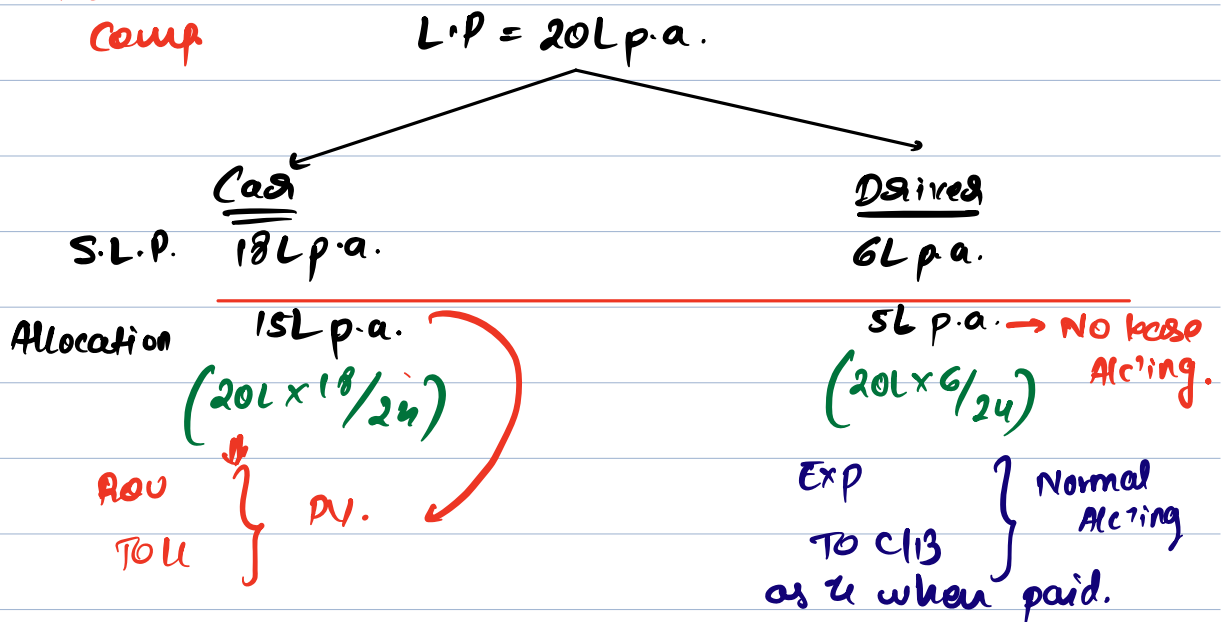 Comp L.P = 20L p.a.
Car Driver
S.L.P. 18L p.a. 6L p.a.
Allocation 15L p.a. 5L p.a. → NO lease
A/c'ing.
(20L x 18/24) (20L x 6/24)
ROU } PV. Exp } Normal
A/c'ing
TO LL TO C/B
as & when paid.